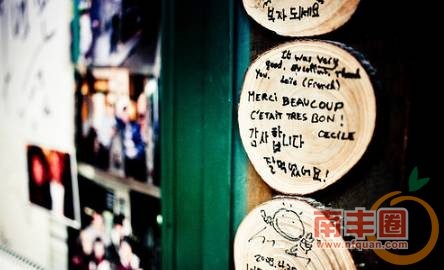 보자 도세요
It was very
good, Thank
You. Loïc (French)
MERCI BEAUCOUP
C'ETAIT TRES BON!
CECILE
감사합니다
잘먹었어요!
2009.4.25
南丰圈
www.nfquan.com